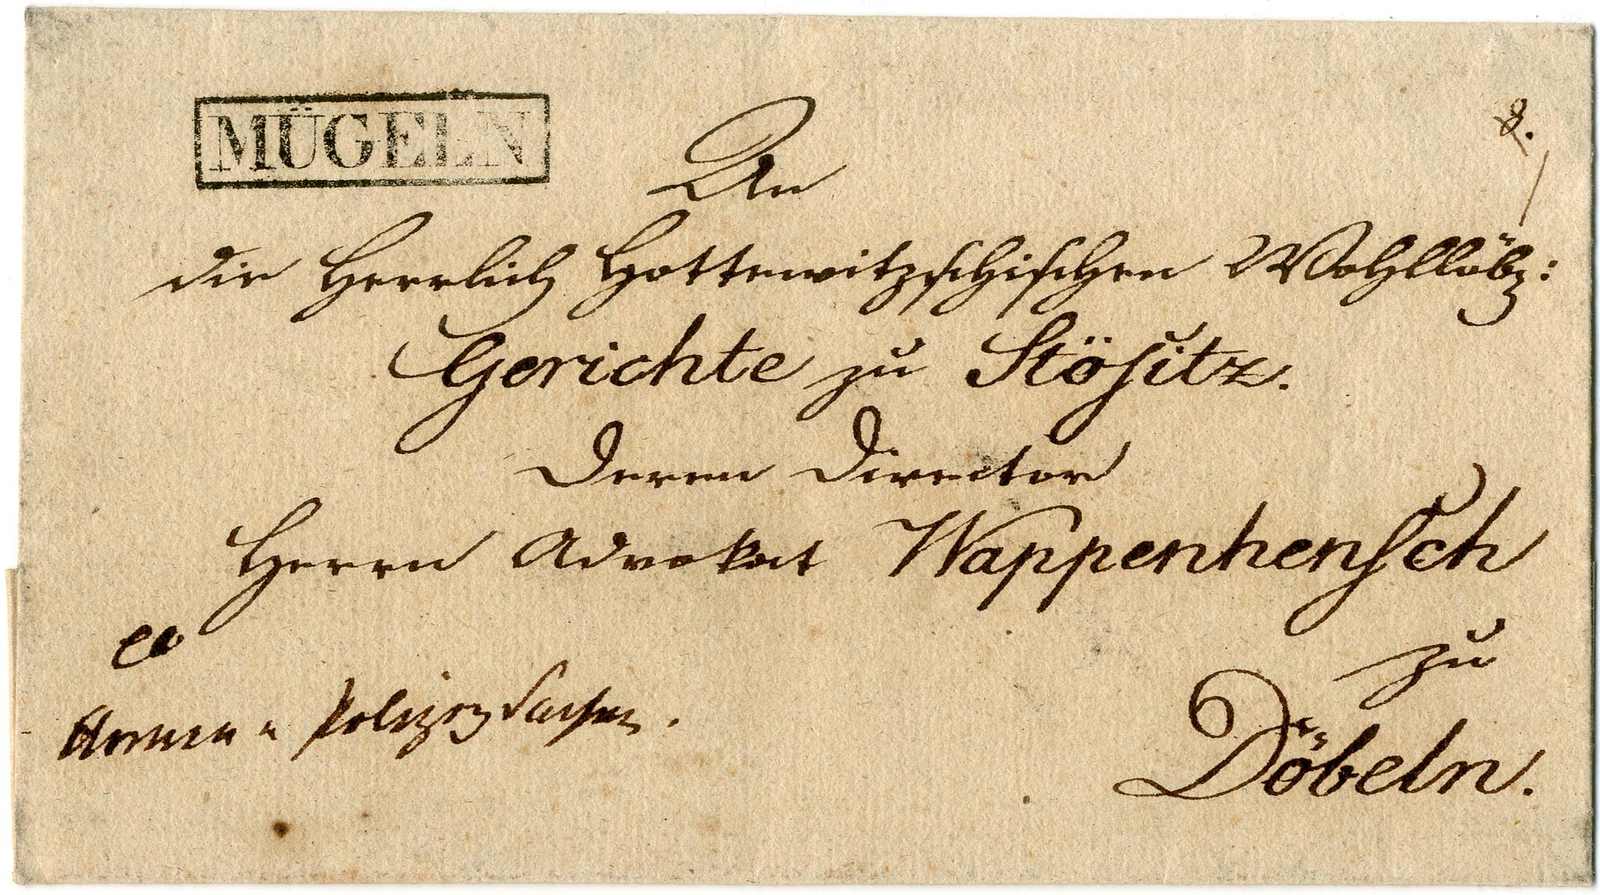 MÜGELN
8.
An
die Herrlich Hottewitzschischen Wohllöbl:
Gerichte zu Stösitz.
Deren Director
Herrn Advokat Wappenhensch
zu
Döbeln.
Armen u Polizey Sachen.